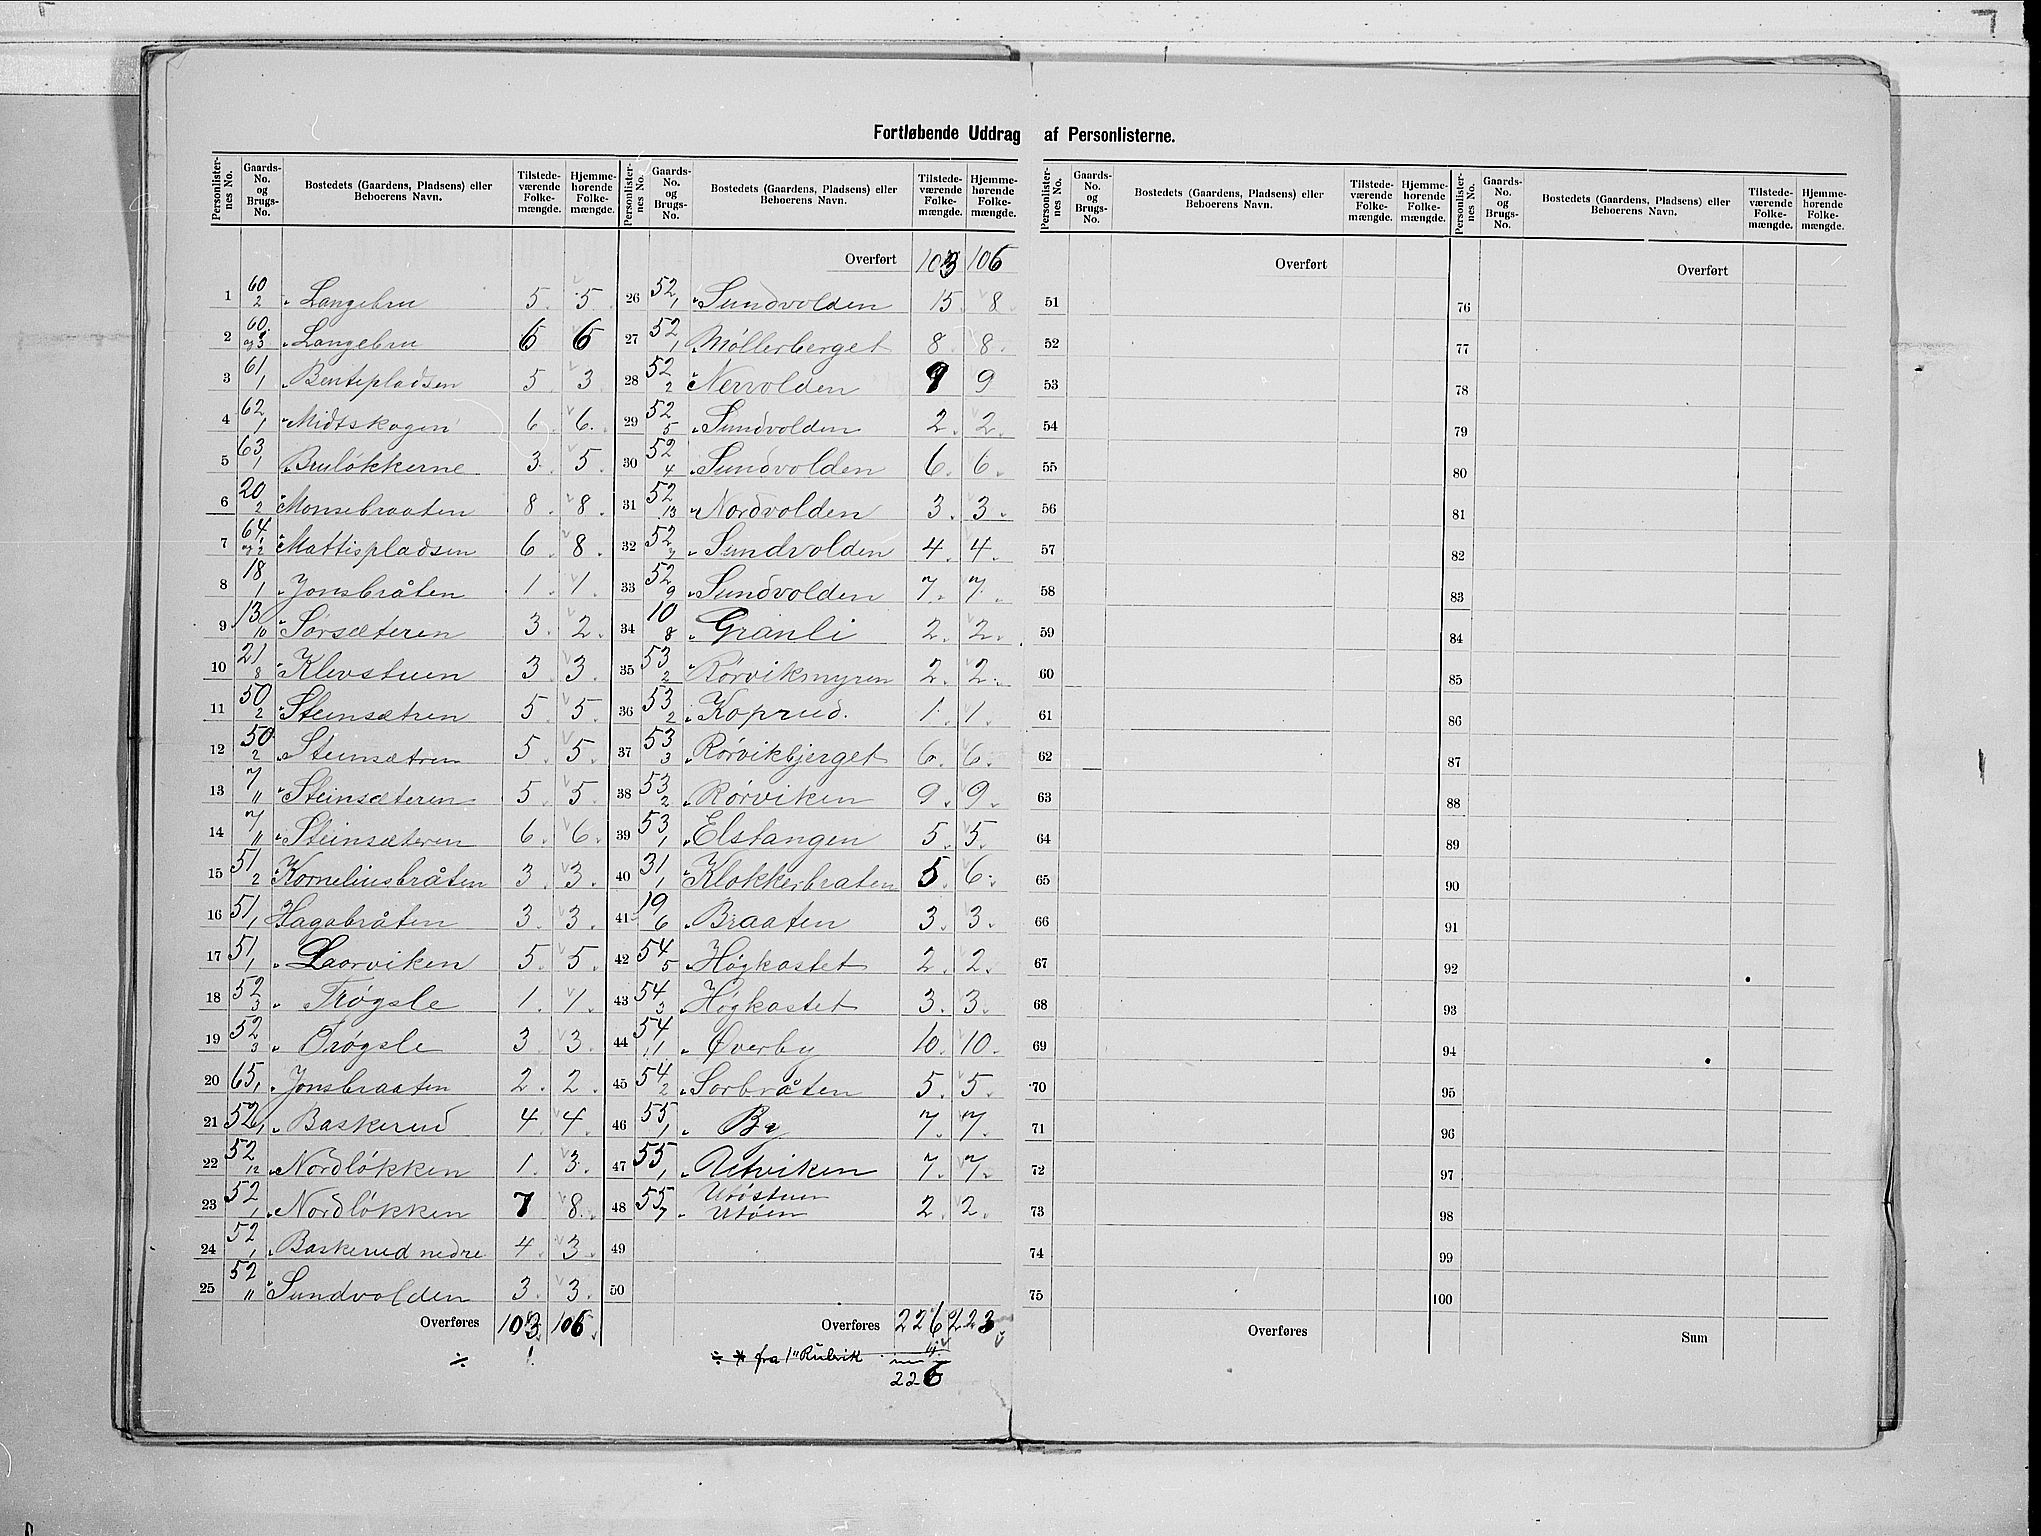 Fortløbende Uddrag af Personlisterne.
Personlister-nes No. Gaards-No. og Brugs-No. Bostedets (Gaardens, Pladsens) eller Beboerens Navn. Tilstede-værende Folke-mængde. Hjemme-hørende Folke-mængde.
1 60/2 Langebru 5. 5.
2 60/og 3 Langebru 6 6
3 61/1 Bentepladsen 5. 3.
4 62/1 Midtskogen 6. 6.
5 63/1 Bruløkkerne 3. 5.
6 20/2 Monsebraaten 8. 8.
7 64/1 og 2 Mattispladsen 6. 8.
8 18/1 Jonsbråten 1. 1.
9 13/10 Sørsæteren 3. 2.
10 21/8 Klevstuen 3. 3.
11 50/2 Steinsætren 5. 5.
12 50/2 Steinsætren 5. 5.
13 7/" Steinsæteren 5. 5.
14 7/" Steinsæteren 6. 6.
15 51/2 Korneliusbråten 3. 3.
16 51/1 Hagabråten 3. 3.
17 51/1 Laorviken 5. 5.
18 52/3 Trøgsle 1. 1.
19 52/3 Trøgsle 3. 3.
20 65/1 Jonsbraaten 2. 2.
21 52/1 Baskerud 4. 4.
22 52/12 Nordløkken 1. 3.
23 52/1 Nordløkken 7 8.
24 52/1 Baskerud nedre 4. 3.
25 52/" Sundvolden 3. 3.
Overføres 103. 106.
÷ 1.
Personlister-nes No. Gaards-No. og Brugs-No. Bostedets (Gaardens, Pladsens) eller Beboerens Navn. Tilstede-værende Folke-mængde. Hjemme-hørende Folke-mængde.
Overført 103 106
26 52/1 Sundvolden 15. 8.
27 52/1 Møllerberget 8. 8.
28 52/2 Nervolden 9 9
29 52/5 Sundvolden 2. 2.
30 52/4 Sundvolden 6. 6.
31 52/13 Nordvolden 3. 3.
32 52/7 Sundvolden 4. 4.
33 52/9 Sundvolden 7. 7.
34 10/8 Granli 2. 2.
35 53/2 Rørviksmyren 2. 2.
36 53/2 Koprud. 1. 1.
37 53/3 Rørvikbjerget 6. 6.
38 53/2 Rørviken 9. 9.
39 53/1 Elstangen 5. 5.
40 31/1 Klokkerbraten 5. 6.
41 19/6 Braaten 3. 3.
42 54/5 Høgkastet 2. 2.
43 54/3 Høgkastet 3. 3.
44 54/11 Øverby 10. 10.
45 54/2 Sørbråten 5. 5.
46 55/1 By 7. 7.
47 55/1 Utviken 7. 7.
48 55/7 Utøstuen Utøen 2. 2.
49
50
Overføres 226 223
÷ * fra 1" Rubrik
226
Personlister-nes No. Gaards-No. og Brugs-No. Bostedets (Gaardens, Pladsens) eller Beboerens Navn. Tilstede-værende Folke-mængde. Hjemme-hørende Folke-mængde.
Overført
51
52
53
54
55
56
57
58
59
60
61
62
63
64
65
66
67
68
69
70
71
72
73
74
75
Overføres
Personlister-nes No. Gaards-No. og Brugs-No. Bostedets (Gaardens, Pladsens) eller Beboerens Navn. Tilstede-værende Folke-mængde. Hjemme-hørende Folke-mængde.
Overført
76
77
78
79
80
81
82
83
84
85
86
87
88
89
90
91
92
93
94
95
96
97
98
99
100
Sum